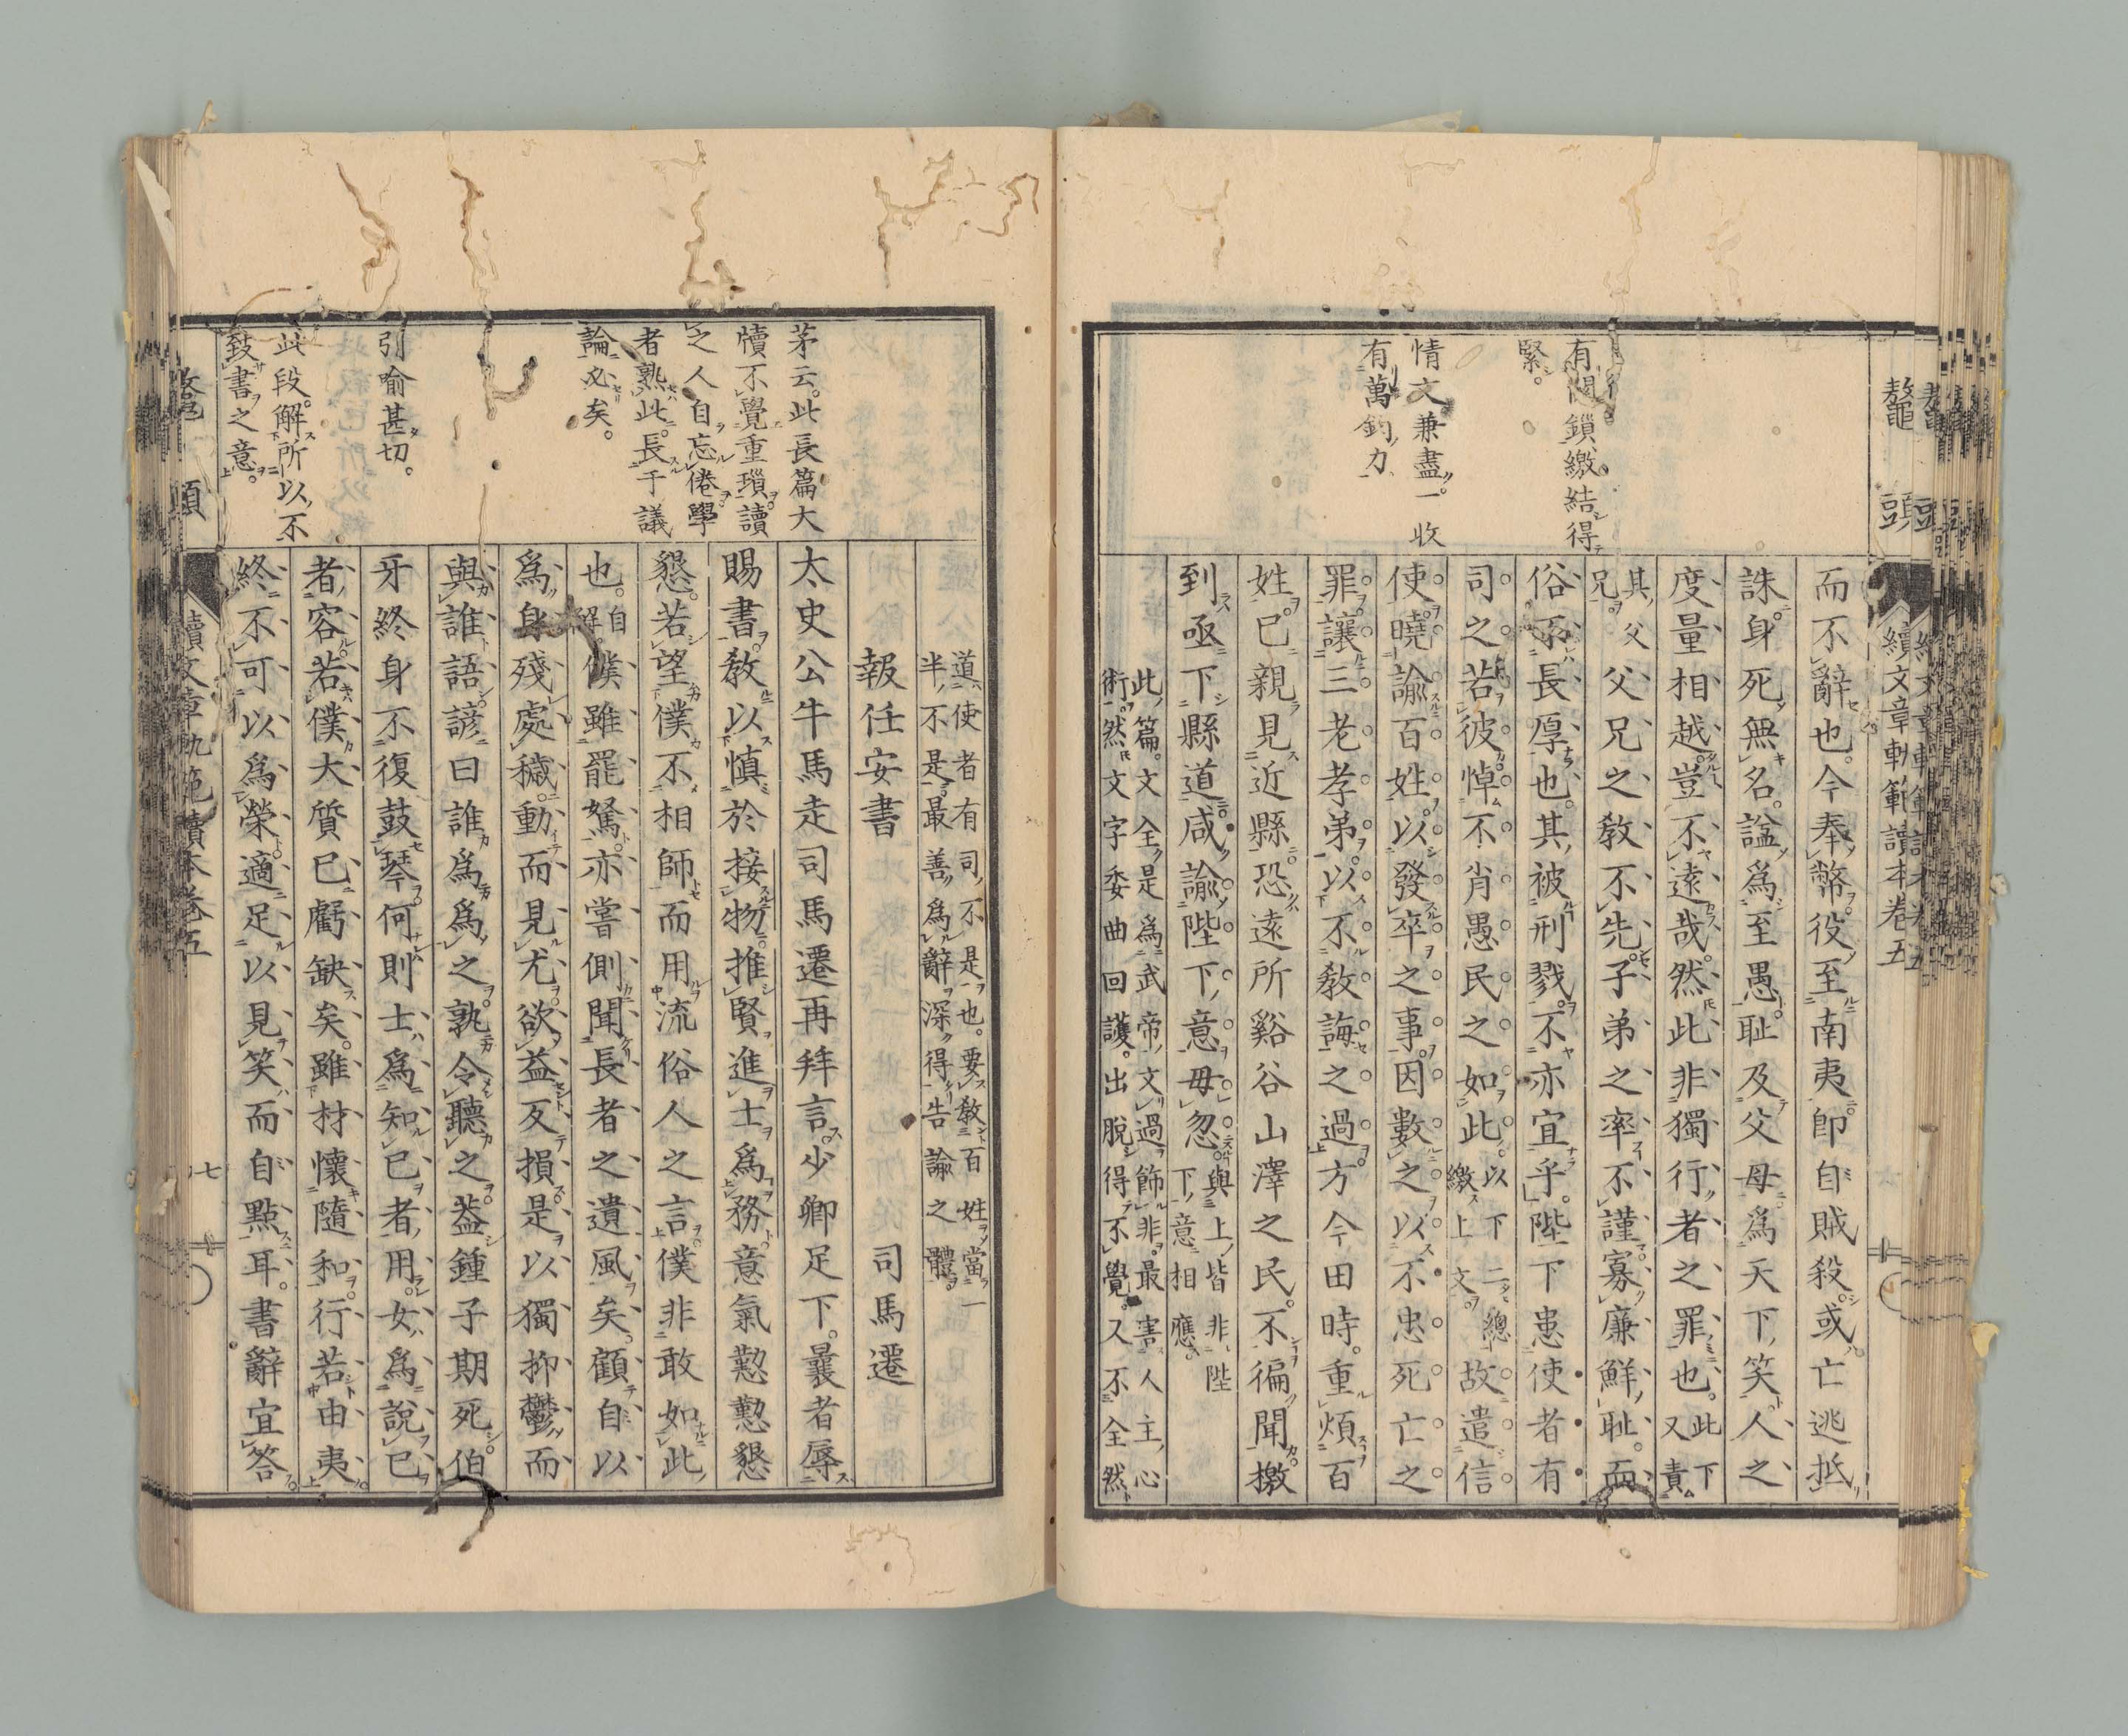 鼇頭
續文章軌範讀本卷五
有關鎖繳結得
緊。
情文兼盡。一收
有萬鈞力
而不辭也。今奉幣役至南夷。卽自賊殺。或亡逃抵
誅。身死無名。諡爲至愚。耻及父母。爲天下笑。人之
度量相越。豈不遠哉。然此非獨行者之罪也。此下又責
其父兄父兄之敎不先。子弟之率不謹。寡廉鮮耻。而
俗不長厚也。其被刑戮。不亦宜乎。陛下患使者有
司之若彼。悼不肖愚民之如此。以下二總繳上文故遣信
使。曉諭百姓。以發卒之事。因數之以不忠死亡之
罪。讓三老孝弟。以不敎誨之過。方今田時。重煩百
姓。已親見近縣。恐遠所谿谷山澤之民。不徧聞。檄
到。亟下縣道。咸諭陛下意。毋忽。與上皆非陛下意相應。
此篇。文全是爲武帝文過飾非。最害人主心
術。然文字委曲回護。出脫得不覺。又不全然
道使者有司不是也。要敎百姓當一
半不是。最善爲辭。深得告諭之體。
報任安書　　　　司馬遷
太史公牛馬走司馬遷再拜言。少卿足下。曩者辱
賜書。敎以愼於接物。推賢進士爲務。意氣懃懃懇
懇。若望僕不相師。而用流俗人之言。僕非敢如此
也。自解。僕雖罷駑。亦嘗側聞長者之遺風矣。顧自以
爲身殘處穢。動而見尤。欲益反損。是以獨抑鬱而
與誰語。諺曰誰爲爲之。孰令聽之。葢鍾子期死。伯
牙終身不復鼓琴。何則士爲知己者用。女爲說己
者容。若僕大質已虧缺矣。雖材懷隨和。行若由夷。
終不可以爲榮。適足以見笑而自點耳。書辭宜答。
茅云。此長篇大
牘不覺重瑣。讀
之人自忘倦。學
者熟此。長于議
論必矣。
引喻甚切。
此段解所以不
致書之意。
續文章軌範讀本卷五
七